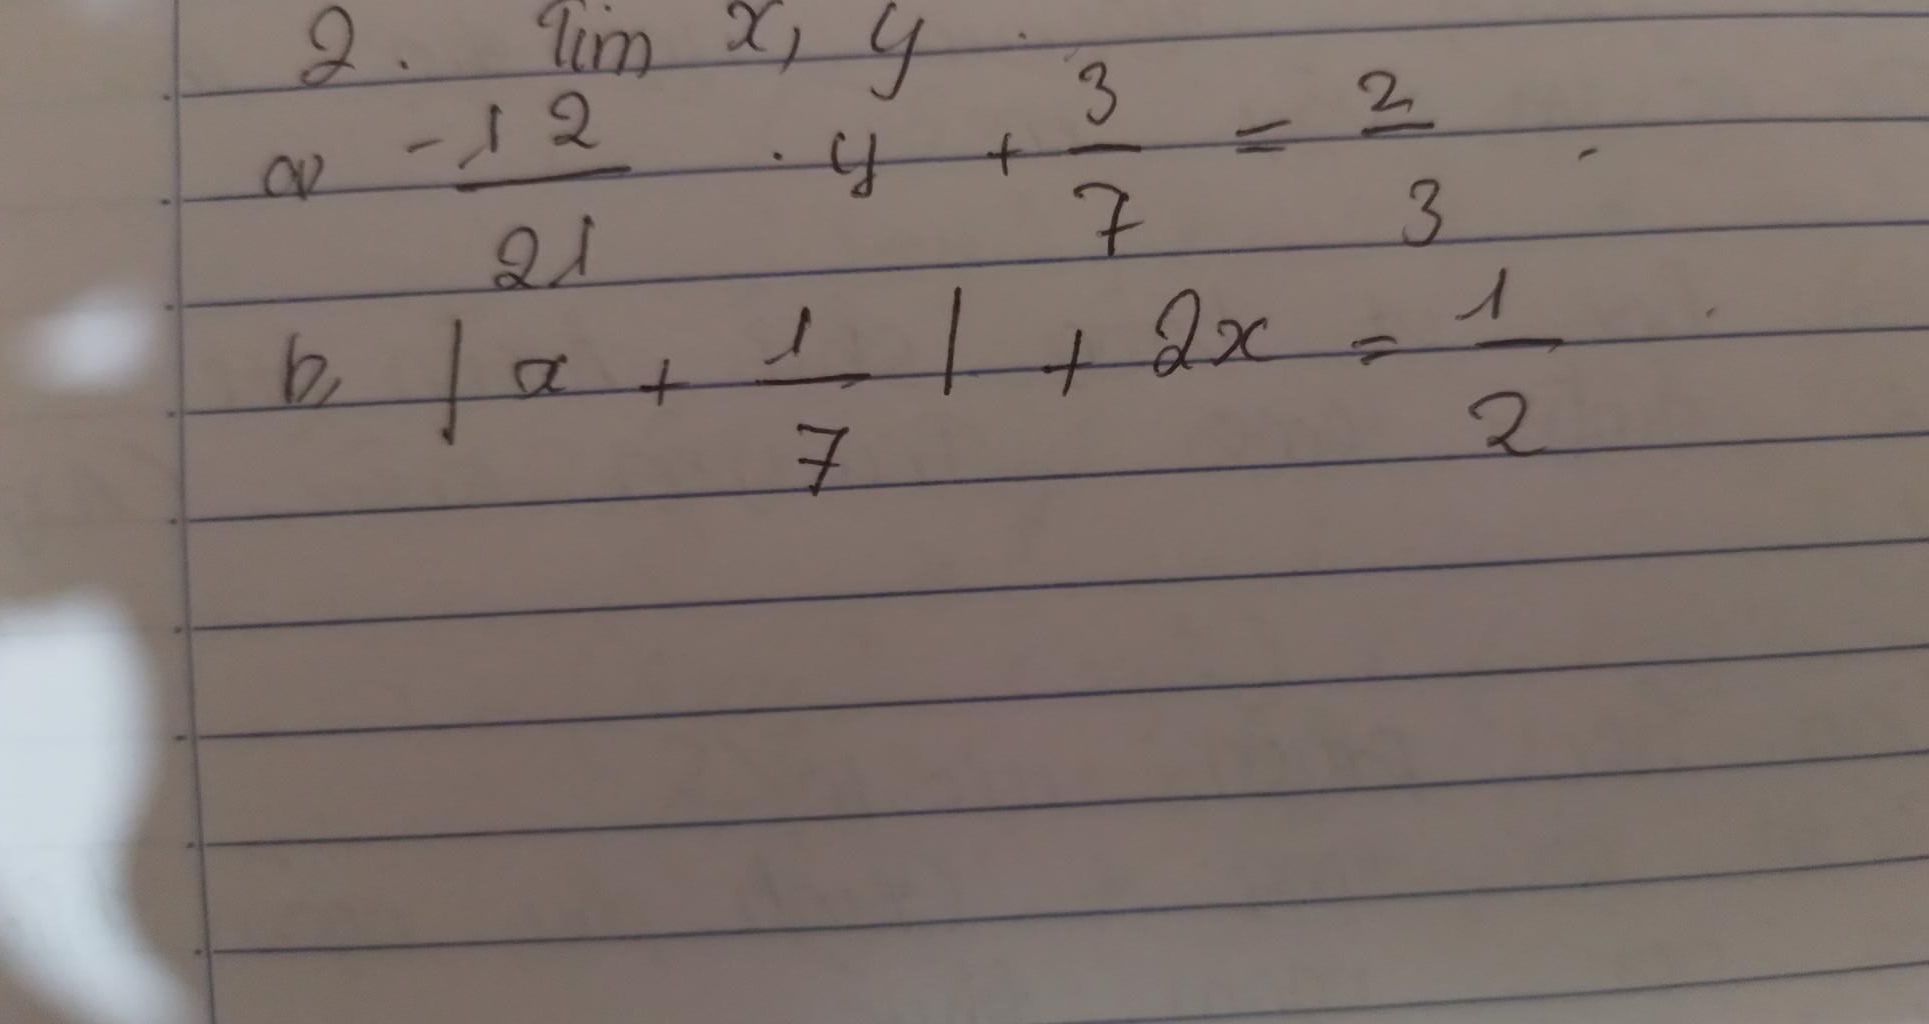 2. Tìm x, y.
a, -12/21 . y + 3/7 = 2/3.
b, |x + 1/7| + 2x = 1/2.